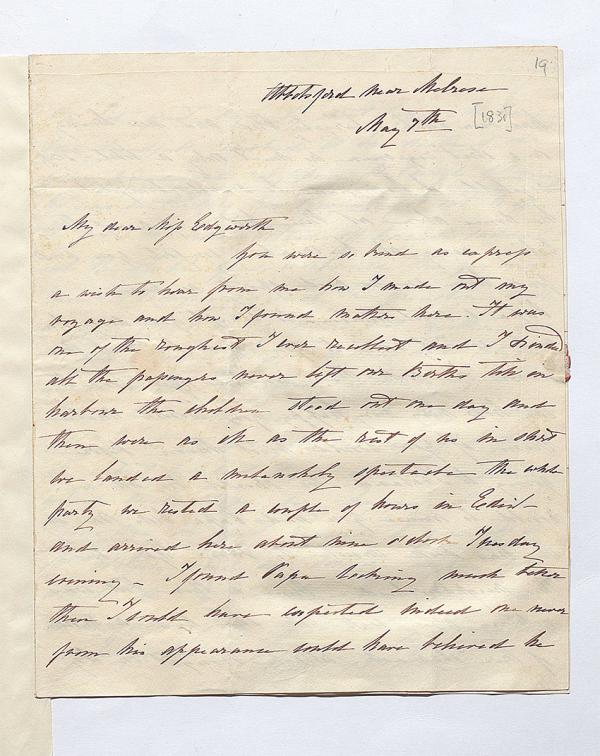 19
Abbotsford near Melrose
May 7th [1831]
My dear Miss Edgworth
You were so kind as express
a wish to hear from me how I made out my
voyage and how I found matters here. It was
one of the roughest I ever recollect and I
all the passengers never left our Births till in
harbour the children stood out one day and
then were as ill as the rest of us in short
we landed a melancholy spectacle the whole
party we rested a couple of hours in Edinr
and arrived here about nine o'clock Tuesday
evening - I found Papa looking much better
than I could have expected indeed one never
from his appearance could have believed he